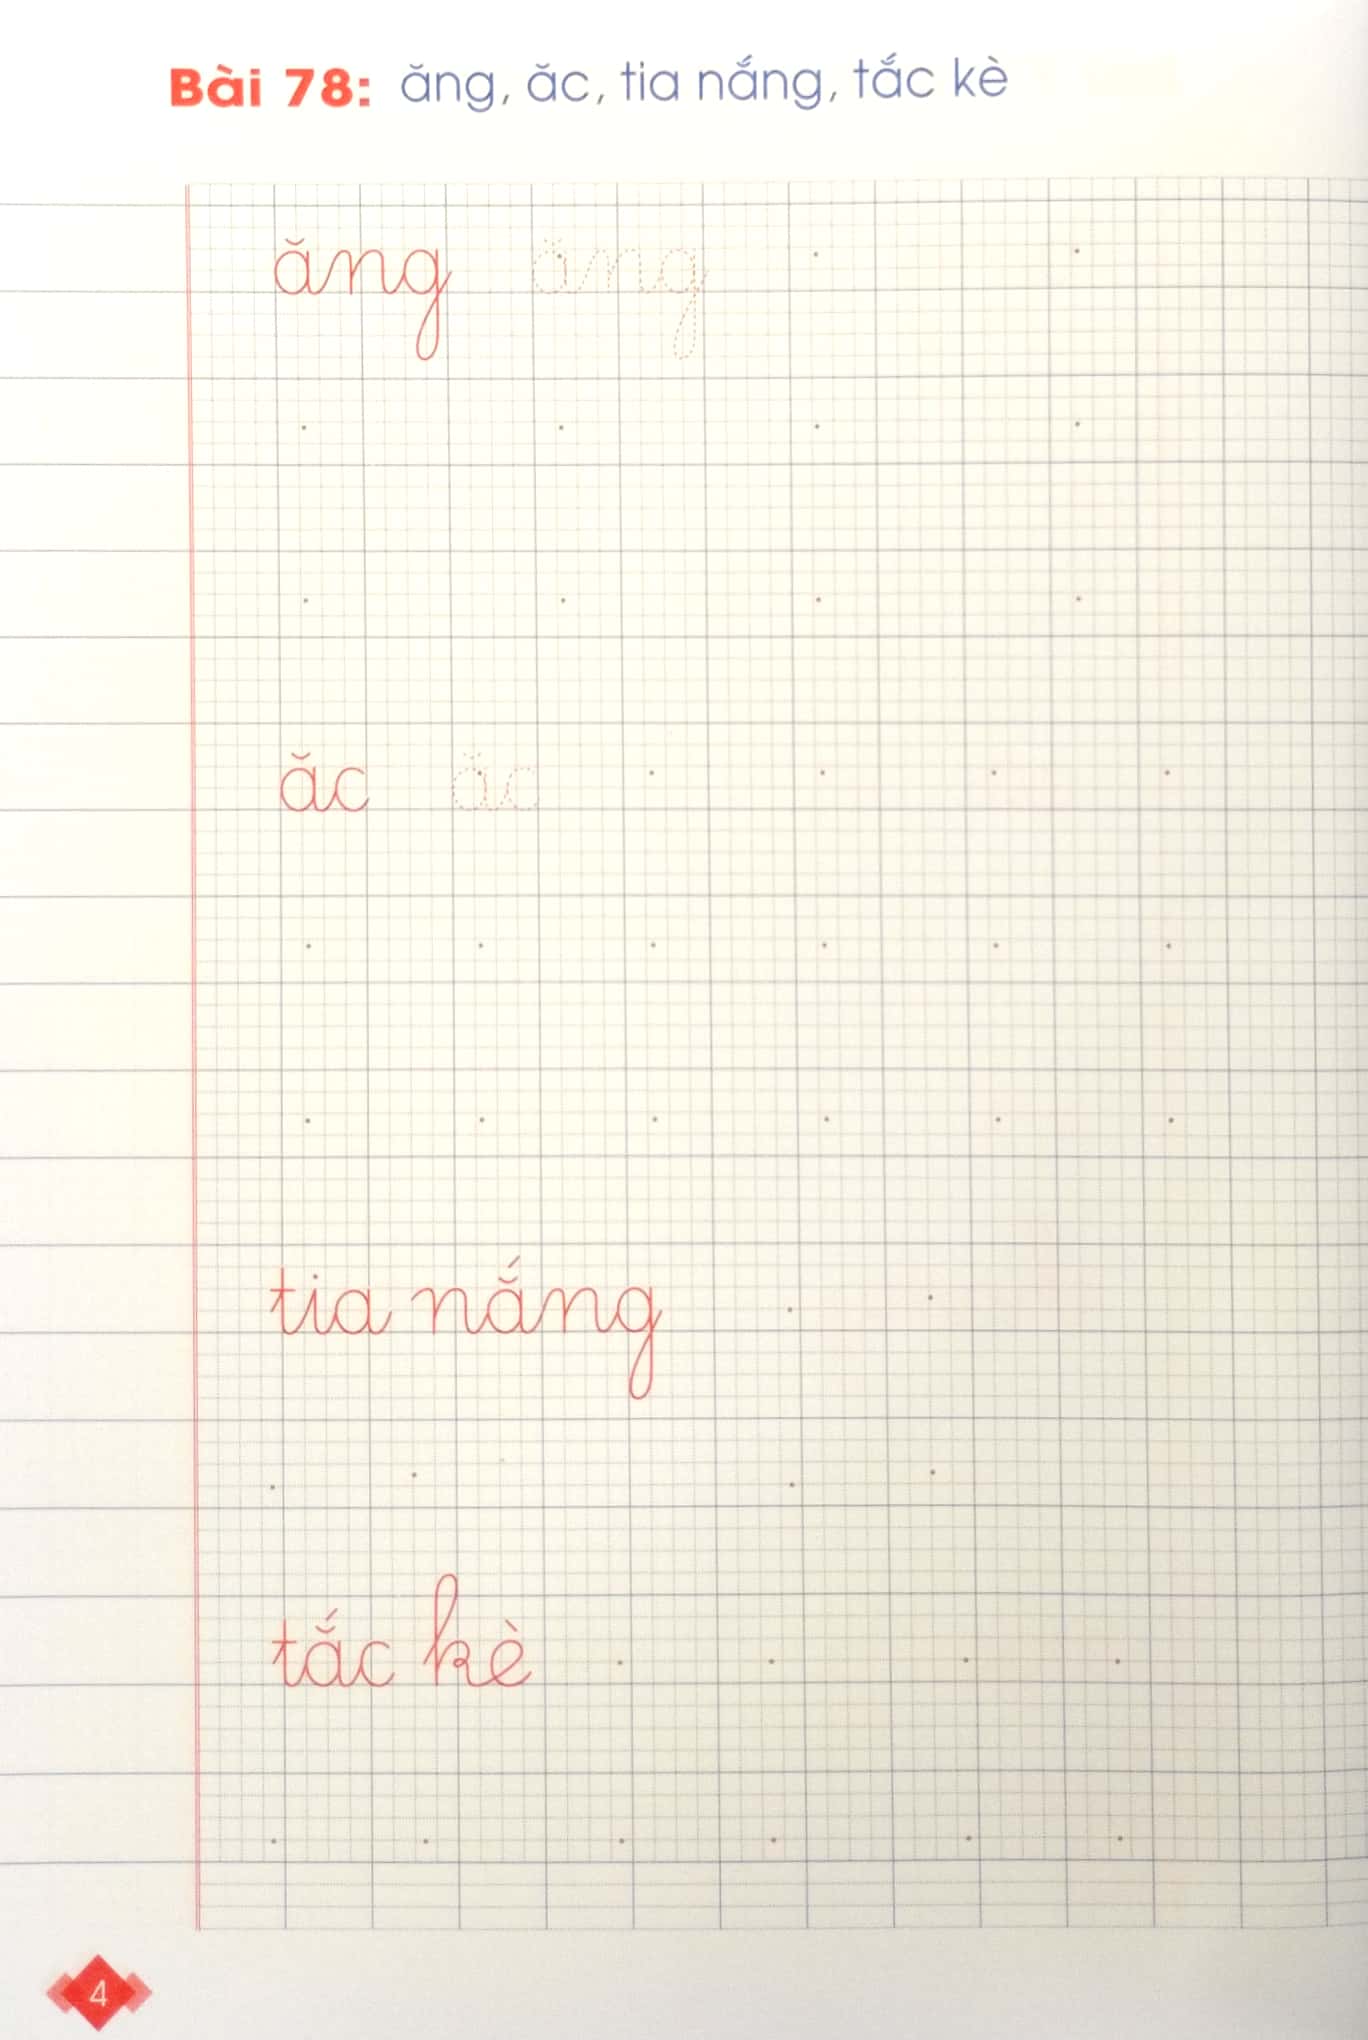 Bài 78: ăng, ăc, tia nắng, tắc kè
ăng ăng
ăc ăc
tia nắng
tắc kè
4